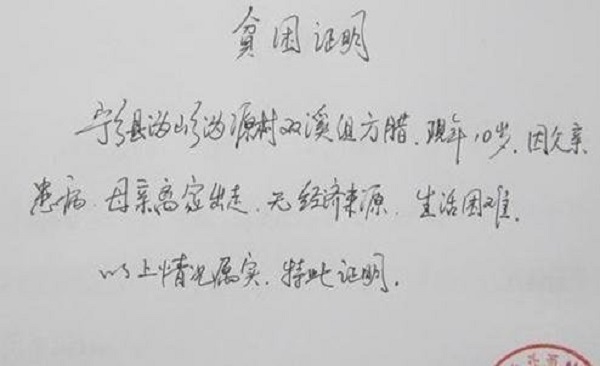 贫困证明
宁乡县沩山乡沩源村双溪组方腊.现年10岁.因父亲
患病.母亲离家出走.无经济来源.生活困难.
以上情况属实.特此证明.